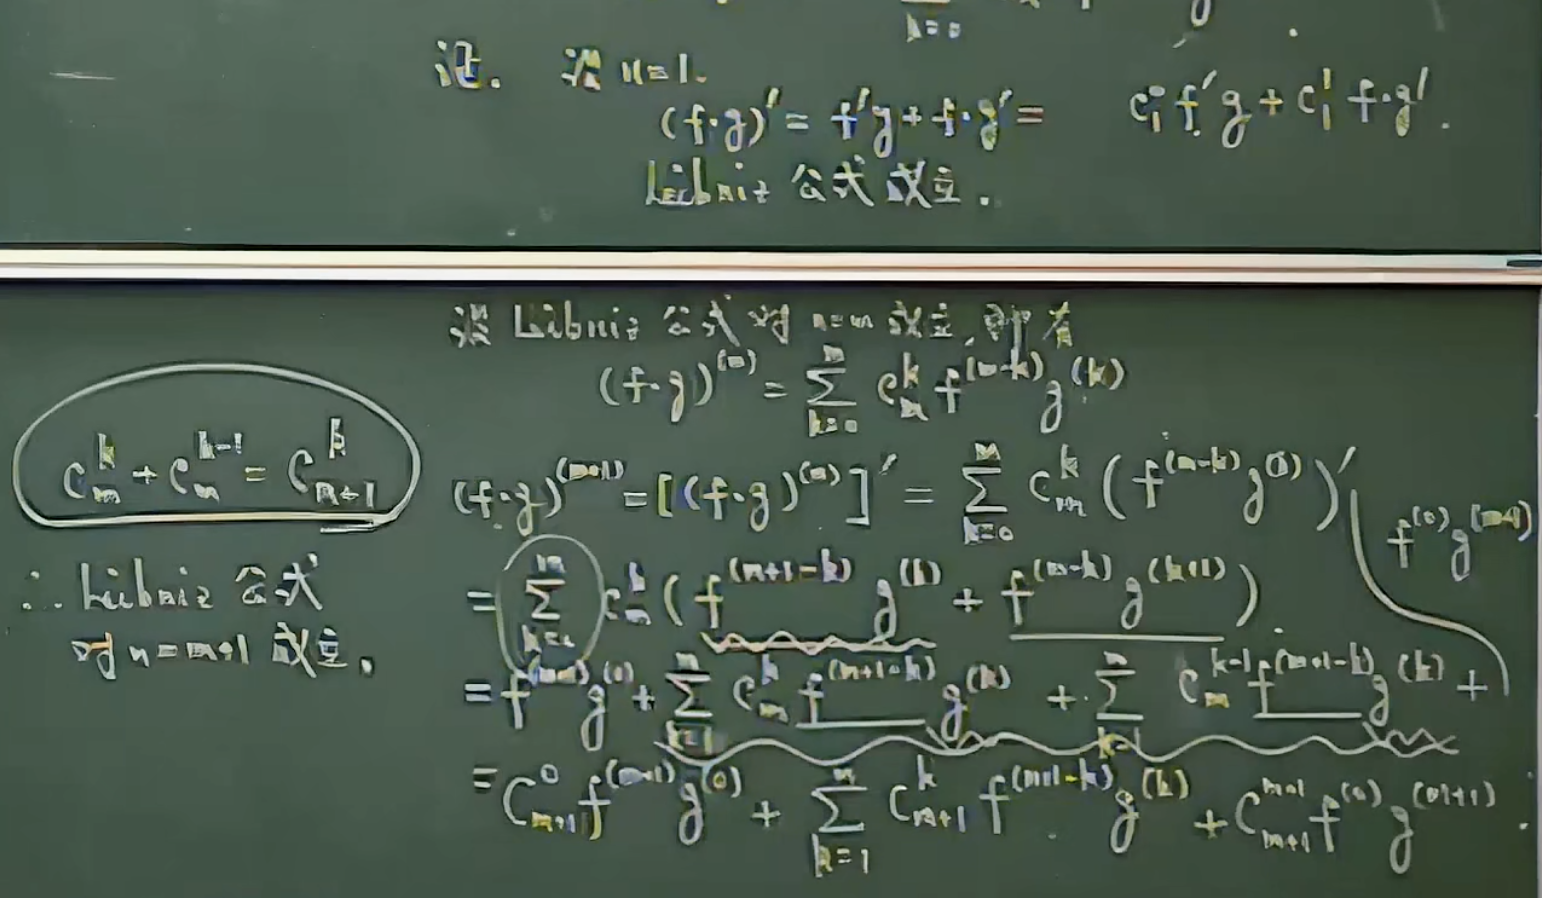 k=0
证. 设 n=1.
(f·g)' = f'g + f·g' = C₁⁰ f'g + C₁¹ f·g'.
Leibniz 公式 成立.
设 Leibniz 公式 对 n=m 成立, 即有
(f·g)^(m) = Σ_{k=0}^{m} C_m^k f^(m-k) g^(k)
C_m^k + C_m^{k-1} = C_{m+1}^k
(f·g)^(m+1) = [(f·g)^(m)]' = Σ_{k=0}^{m} C_m^k (f^(m-k) g^(k))'
f^(0) g^(m+1)
= Σ_{k=0}^{m} C_m^k (f^(m+1-k) g^(k) + f^(m-k) g^(k+1))
∴ Leibniz 公式
对 n=m+1 成立.
= f^(m+1) g^(0) + Σ_{k=1}^{m} C_m^k f^(m+1-k) g^(k) + Σ_{k=1}^{m} C_m^{k-1} f^(m+1-k) g^(k) +
= C_{m+1}^0 f^(m+1) g^(0) + Σ_{k=1}^{m} C_{m+1}^k f^(m+1-k) g^(k) + C_{m+1}^{m+1} f^(0) g^(m+1)